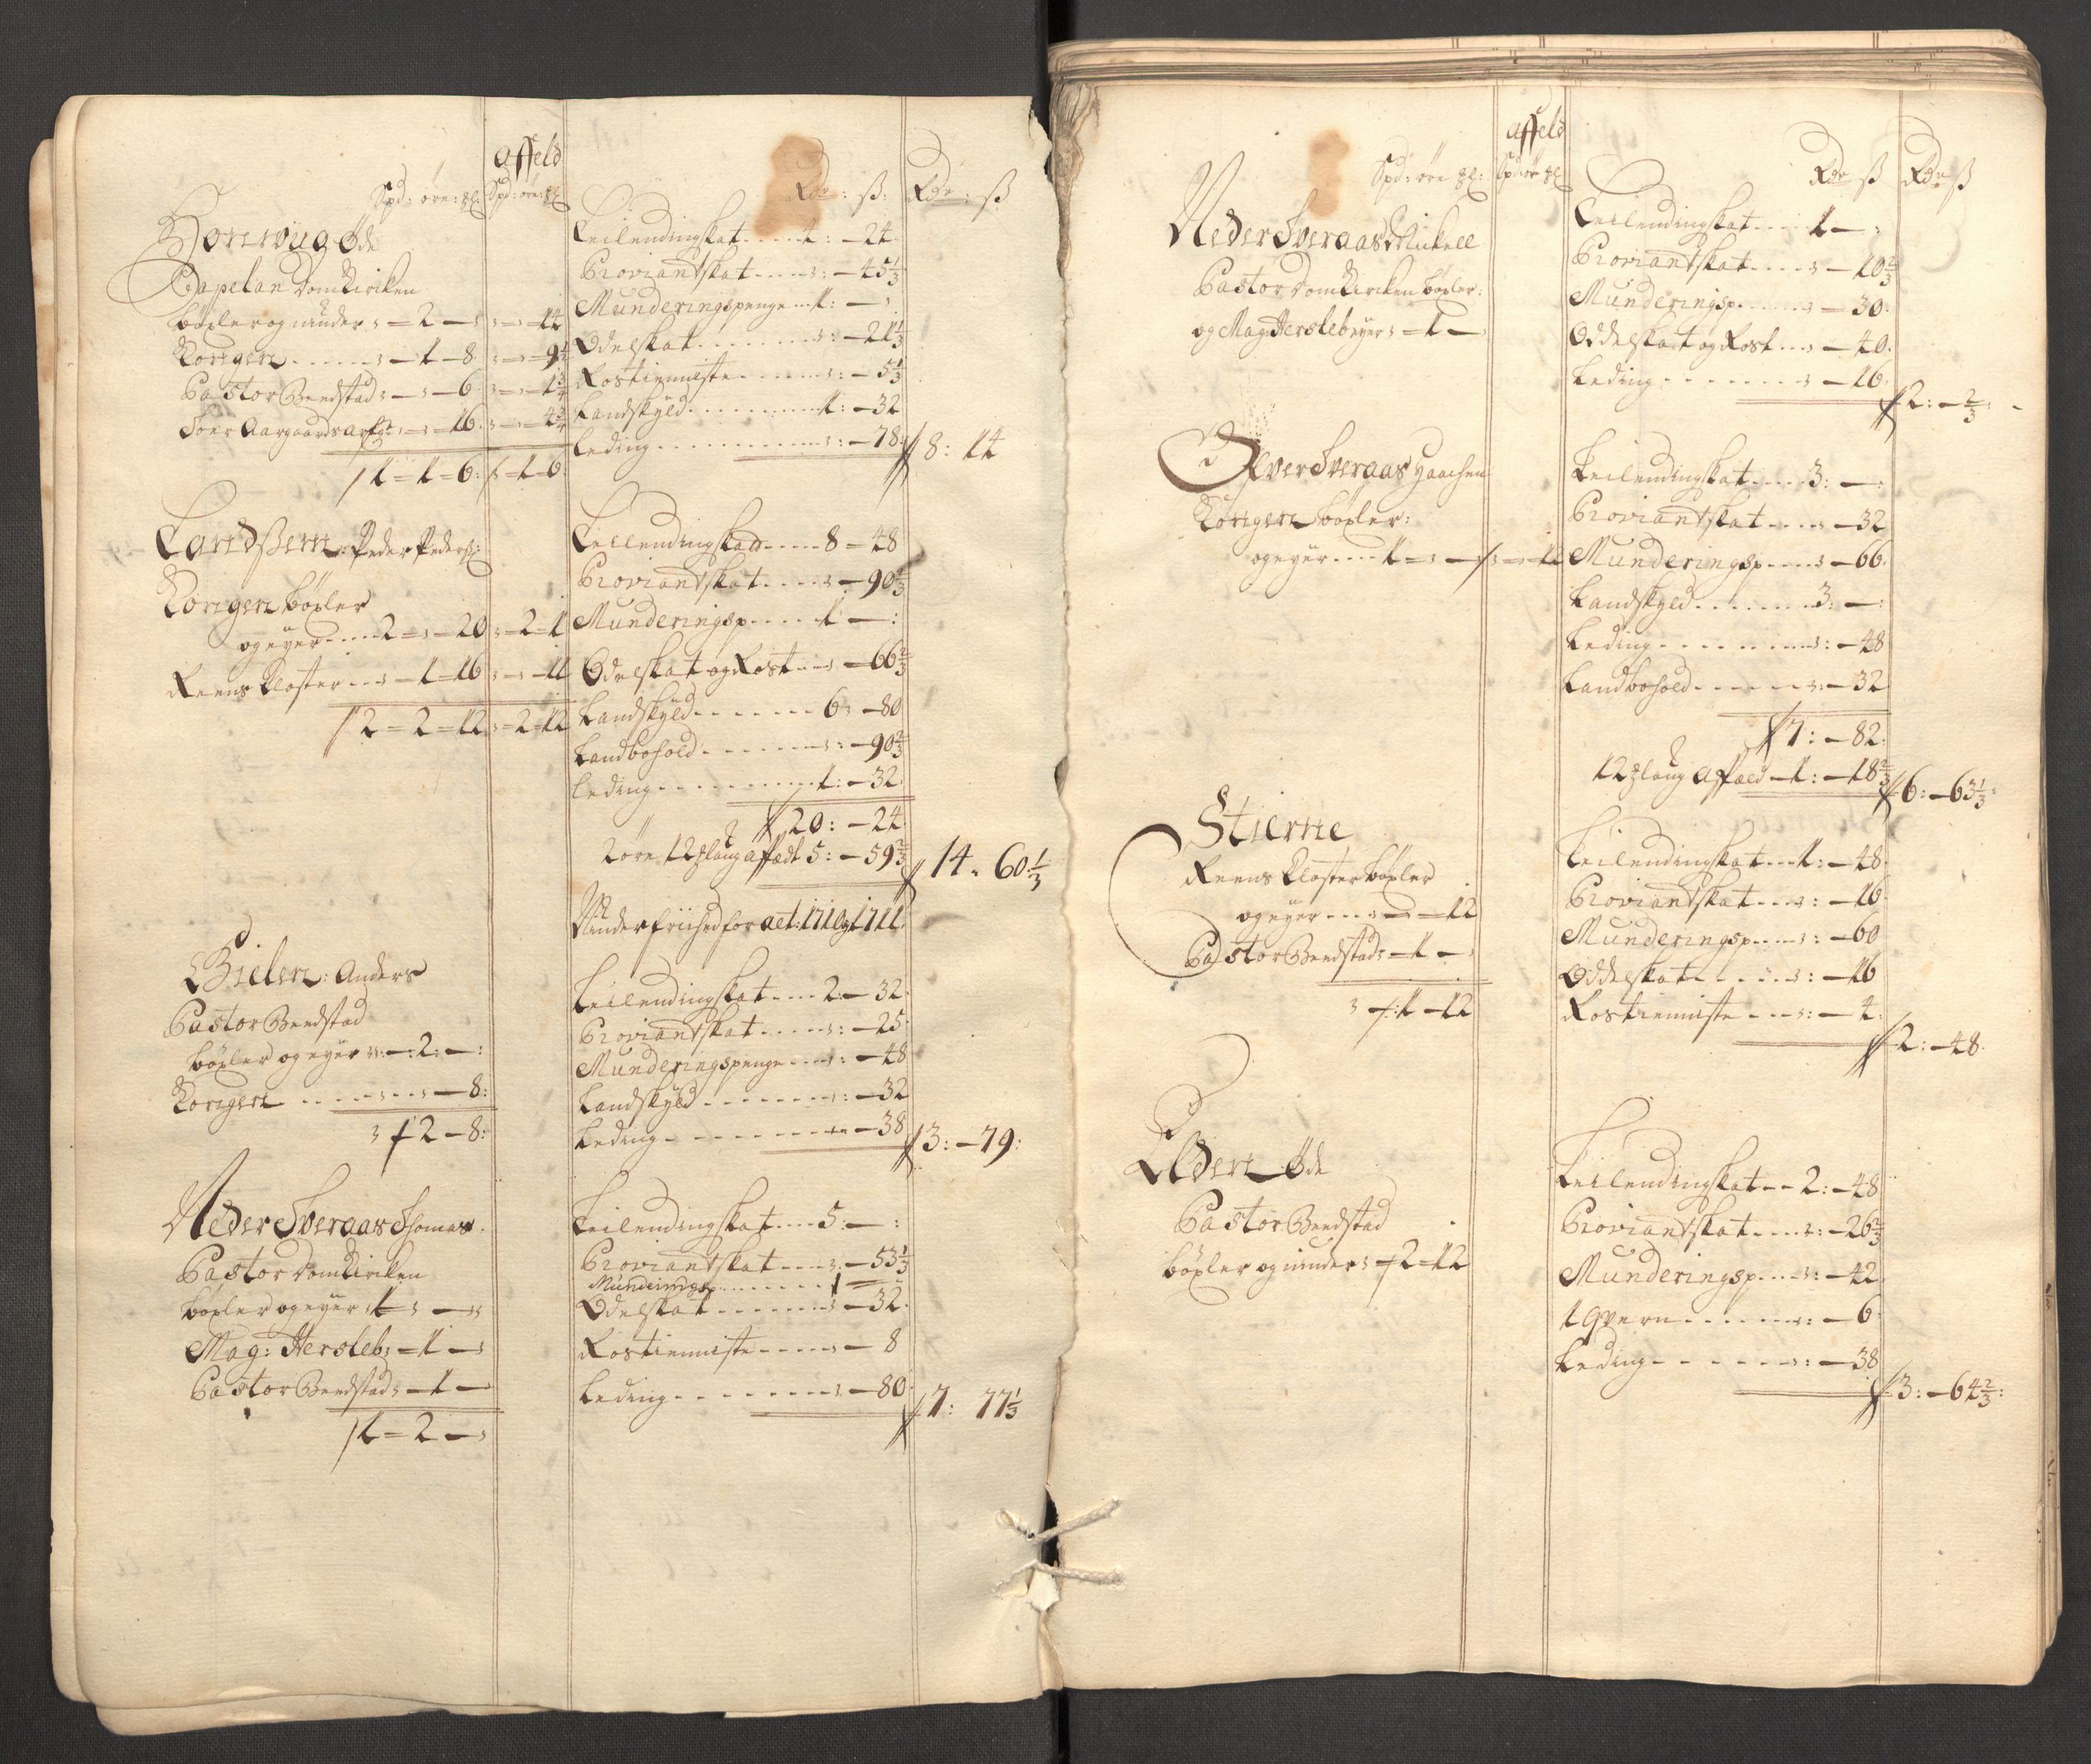 affeld
Spd: öre: gl: Spd: öre: gl
Rdr: ß: Rdr: ß
Honivug Øde
Capelan domKircken
böxler og under : = 2 — : : — 14
Kongen ..... : — 1 — 8
Pastor Bredstad : — : — 6
Soer Aargaards arf
/1 = 1 = 6: /: 1 = 6
Leilendingskat .... 4: — 24
Proviantskat .... : — 45 1/3
Munderingspenge .. 1: — :
Odelskat ....... : — 21 1/3
Rostienniste ..... : — 5 1/3
Landskyld ....... 1: — 32
Leding ........ : — 78 8: 14
Landßem: Peder Peders:
Kongen böxler
og eyer .... 2 = : — 20 : — 2 = 1
Reens Kloster .. : — 1 — 16 : — : — 11
/2 = 2 = 12 : — 2 = 12
Leilendingskatt .... 8 — 48
Proviantskat .... : — 90 2/3
Munderingsp .... 1 — :
Odelskat og Rost .. : — 66 2/3
Landskyld ...... 6: — 80
Landbohold ...... : — 90 2/3
Leding ....... 1: — 32
20: — 24
2 öre 12 gl aug affeldt 5: — 59 2/3 14 : 60 1/3
Under friihed for aet: 1710 og 1711
Bielen: Anders
Pastor Bredstad
böxler og eyer : — : 2: — :
Kongen ..... : — 8:
: / 2 — 8:
Leilendingskat .... 2: — 32
Proviantskat ..... : — 25
Munderingspenge ... : — 48
Landskyld ....... : — 32
Leding ........ — 38 3: — 79:
Neder Sveraas Thomas
Pastor domKircken
böxler og eyer : 1 = : — :
Mag: Hersleb : — 1 — :
Pastor Bredstad : — 1 —
/1 = 2 — :
Leilendingskat .... 5: — :
Proviantskat .... : — 53 1/3
Munderingsp ....... 1 — :
Odelskat ....... : — 32
Rostienniste ..... : — 8
Leding ........ : — 80 7: 77 1/3
affeld
Spd: öre gl: Spd: ör gl
Rdr ß Rdr ß
Neder Sveraas Mickell
Pastor domKircken böxler:
og Mag: Hersleb eyer : — 1 —
Leilendingskat .... 1 — :
Proviantskat .... : — 10 2/3
Munderingsp ..... : — 30:
Oddelskat og Rost .. : — 40.
Leding ....... : — 16.
2: — 2/3:
Øfver Sveraas Haachen
Kongen böxler:
og eyer .... 1 = : — /: = 12
Leilendingskat .... 3: — :
Proviantskat .... : — 32
Munderingsp .... : — 66.
Landskyld ....... 3: — :
Leding ....... : — 48
Landbohold ..... : — 32
7: — 82:
12 gl aug affæld — 1: — 18 2/3 6: — 63 1/3:
Stierne
Reens Kloster böxler
og eyer ... : — = 12
Pastor Bredstad : — 1 — :
: /: 1 — 12
Leilendingskat ... 1: — 48
Proviantskat ... : — 16.
Munderingsp .... : — 60
Oddelskat ..... : — 16
Rostienniste ... : — 4.
2: — 48.
Elden Øde
Pastor Bredstad
böxler og under : / 2 = 12
Leilendingskat .. 2: — 48
Proviantskat .... : — 26 2/3
Munderingsp .... : — 42
1 Qvern ...... : — 6
Leding ...... : — 38
3: — 64 2/3: